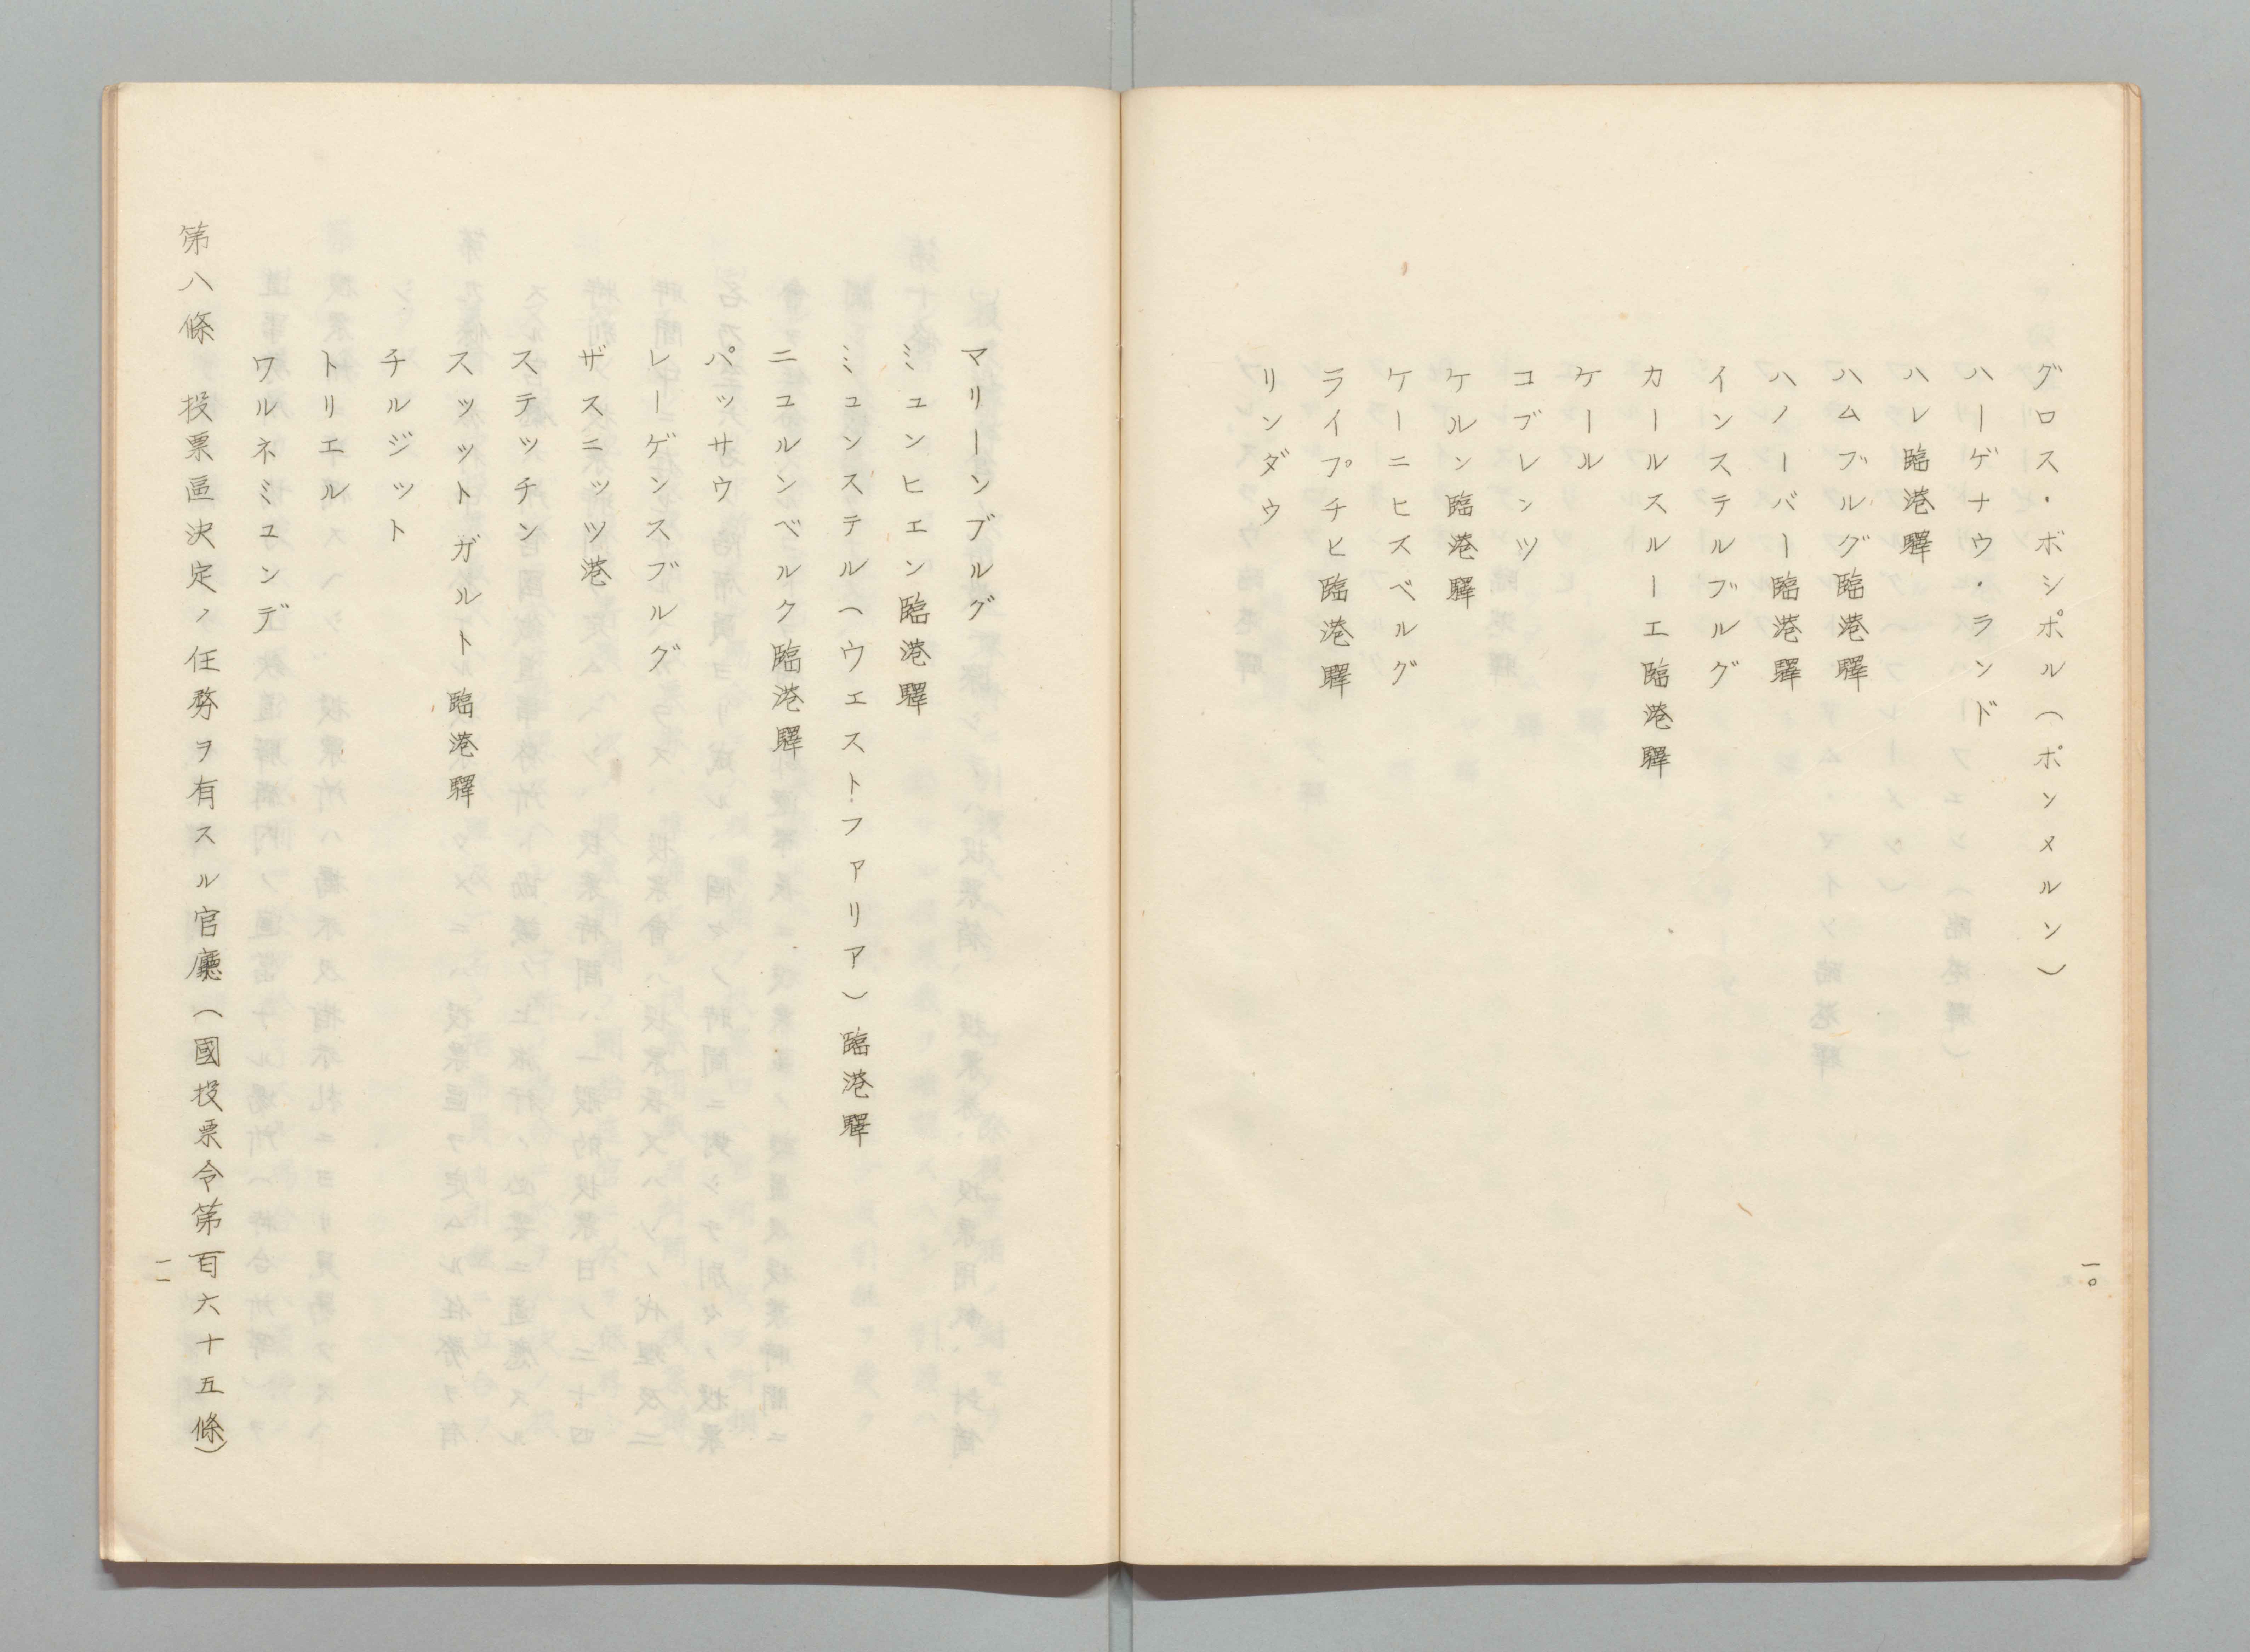 グロス・ボシポル（ポンメルン）
ハーゲナウ・ランド
ハレ臨港驛
ハムブルグ臨港驛
ハノーバー臨港驛
インステルブルグ
カールスルーエ臨港驛
ケール
コブレンツ
ケルン臨港驛
ケーニヒスベルグ
ライプチヒ臨港驛
リンダウ
一〇
マリーンブルグ
ミュンヒェン臨港驛
ミュンステル（ウェストファリア）臨港驛
ニュルンベルク臨港驛
パッサウ
レーゲンスブルグ
ザスニッツ港
ステッチン
スツットガルト臨港驛
チルジット
トリエル
ワルネミュンデ
第八條　投票區決定ノ任務ヲ有スル官廳（國投票令第百六十五條）
一一